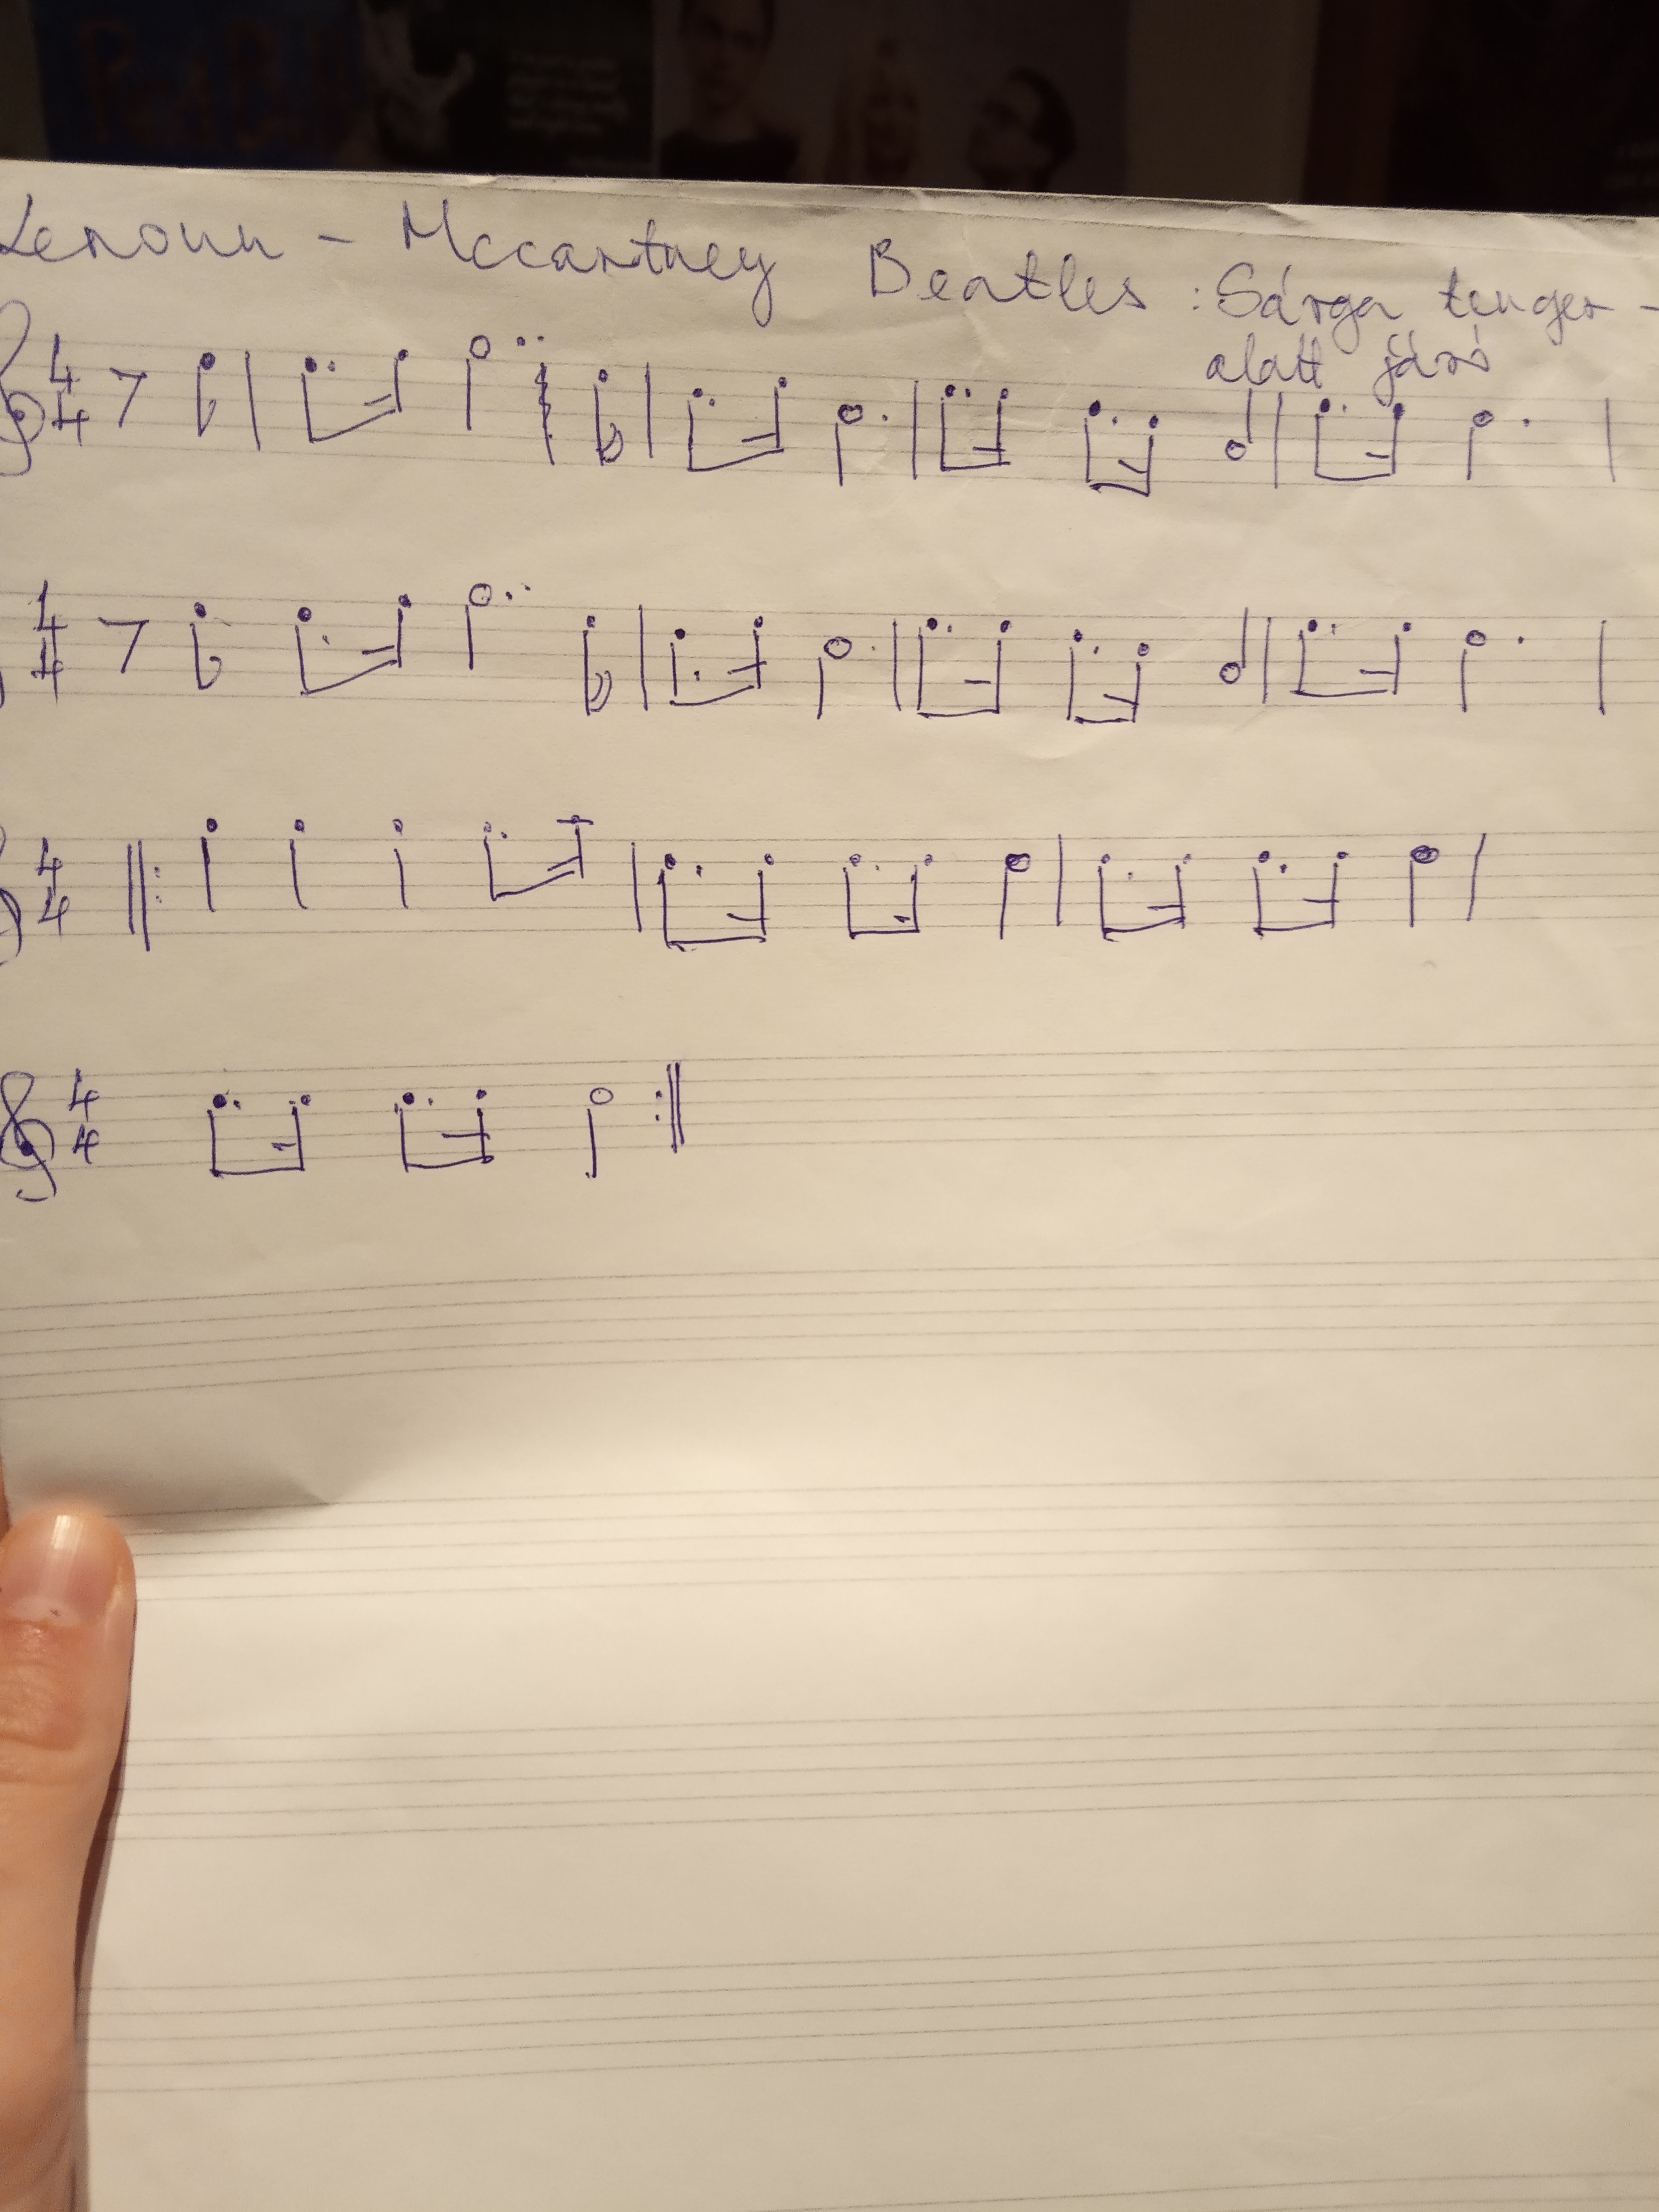 Lenonn - Mccartney Beatles : Sárga tenger -
alatt járó
4
4
4
4
4
4
4
4